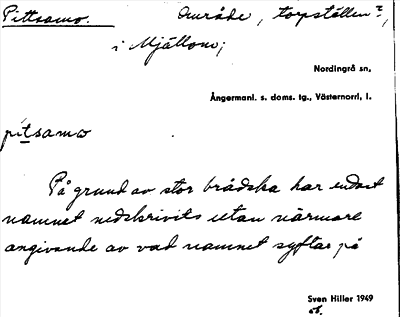 Pittsamo. Område, torpställen?,
i Mjällom;
Nordingrå sn,
Ångermanl. s. doms. tg., Västernorrl. l.
pitsamo
På grund av stor brådska har endast
namnet nedskrivits utan närmare
angivande av vad namnet syftar på
Sven Hiller 1949